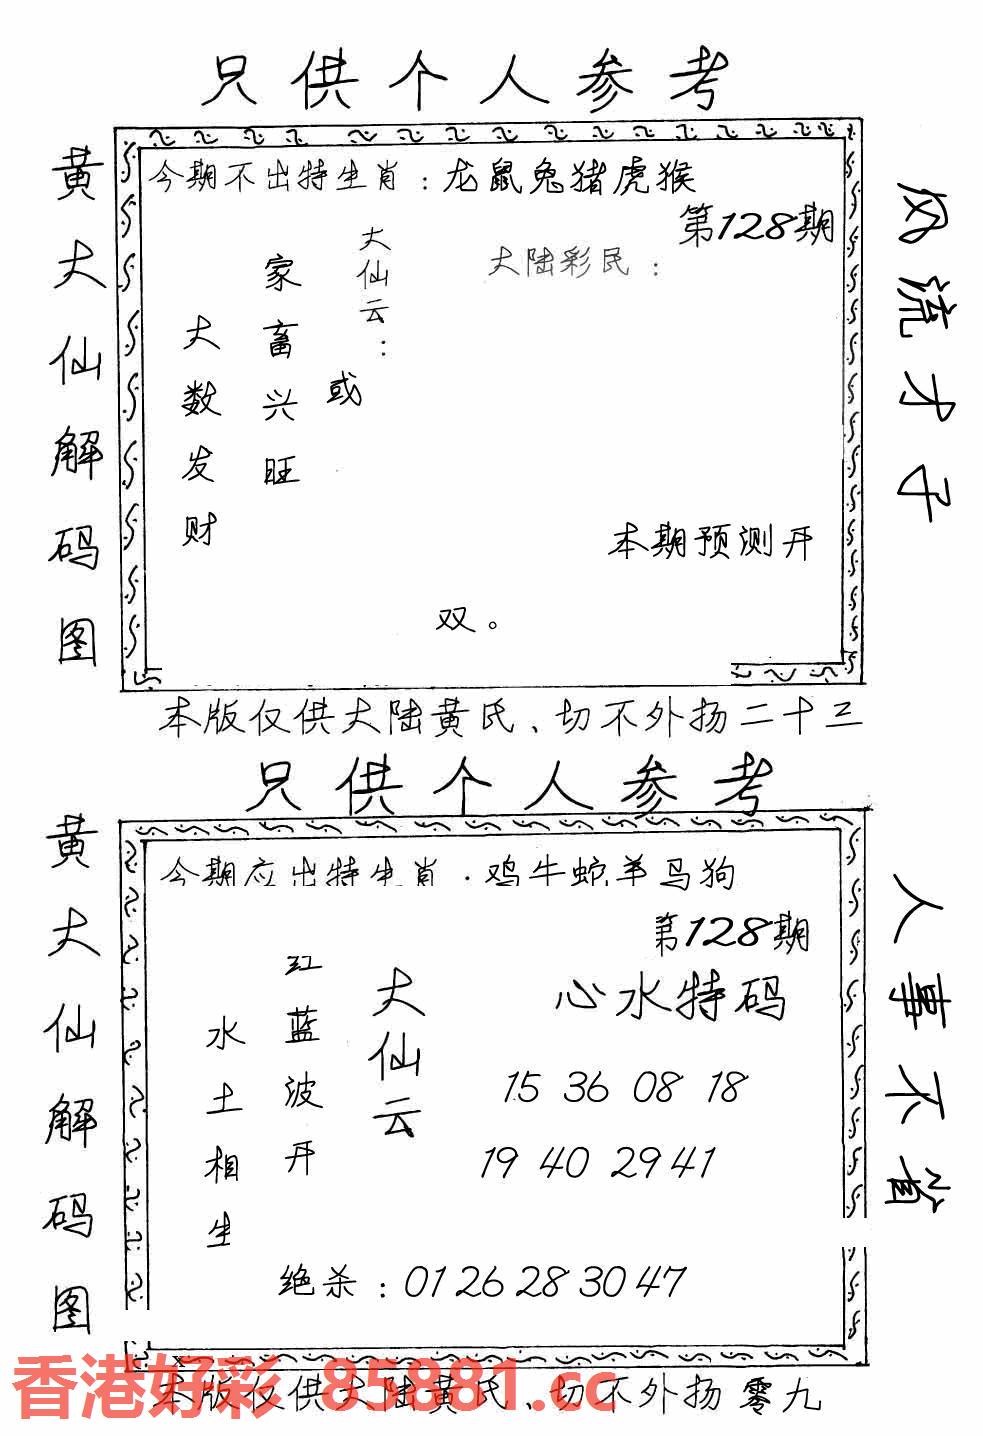 只供个人参考
黄大仙解码图
今期不出特生肖：龙鼠兔猪虎猴
第128期
大陆彩民：
大仙云：
或
家畜兴旺
大数发财
本期预测开
双。
风流才子
本版仅供大陆黄氏、切不外扬二十三
只供个人参考
黄大仙解码图
今期应出特生肖：鸡牛蛇羊马狗
第128期
心水特码
大仙云
红蓝波开
水土相生
15 36 08 18
19 40 29 41
绝杀：01 26 28 30 47
人事不省
香港好彩 85881.cc
本版仅供大陆黄氏、切不外扬 零九